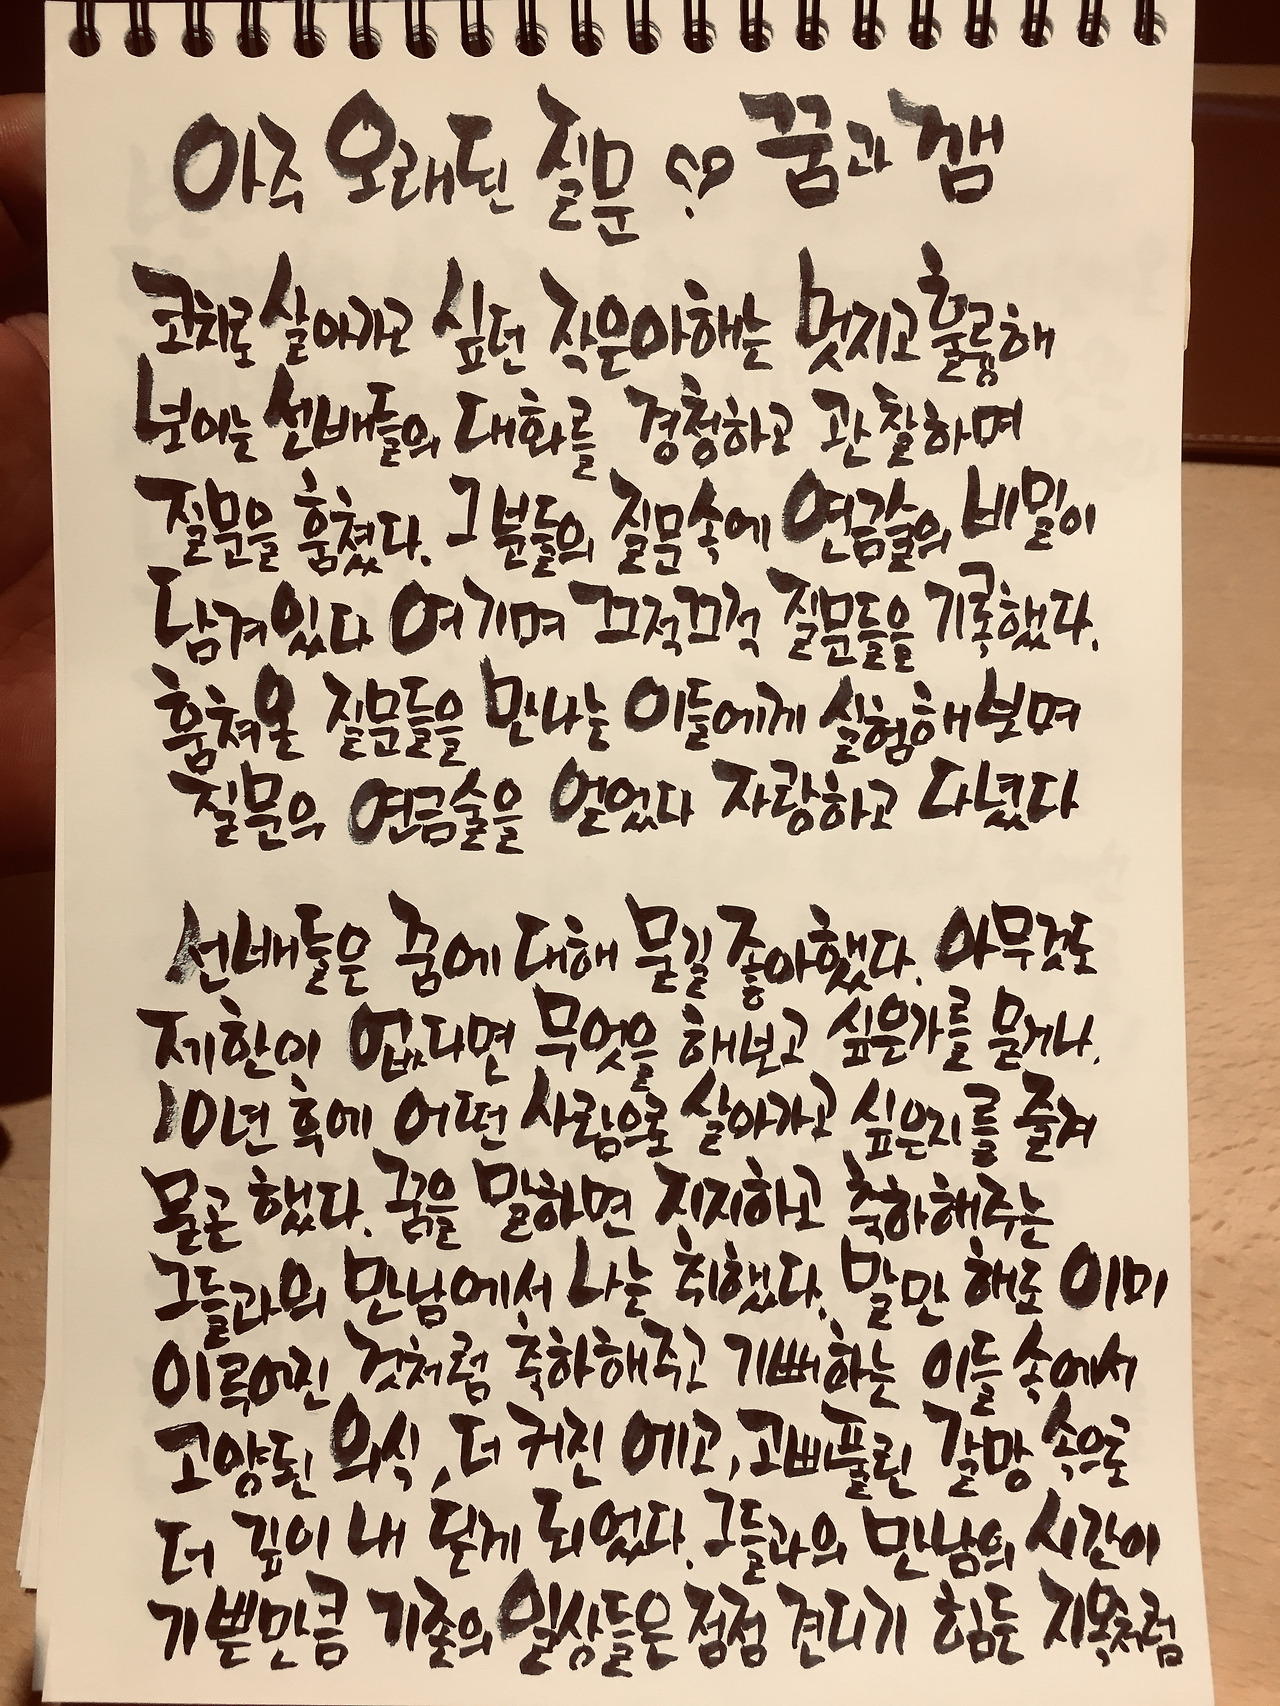 아주 오래된 질문 ♡ 꿈과 갭
코치로 살아가고 싶던 작은아해는 멋지고 훌륭해
보이는 선배들의 대화를 경청하고 관찰하며
질문을 훔쳤다. 그분들의 질문속에 연금술의 비밀이
담겨있다 여기며 끄적끄적 질문들을 기록했다.
훔쳐온 질문들을 만나는 이들에게 실험해보며
질문의 연금술을 얻었다 자랑하고 다녔다
선배들은 꿈에 대해 묻길 좋아했다. 아무것도
제한이 없다면 무엇을 해보고 싶은가를 묻거나.
10년 후에 어떤 사람으로 살아가고 싶은지를 즐겨
묻곤 했다. 꿈을 말하면 지지하고 축하해주는
그들과의 만남에서 나는 취했다. 말만 해도 이미
이루어진 것처럼 축하해주고 기뻐하는 이들 속에서
고양된 의식, 더 커진 에고, 고삐풀린 갈망 속으로
더 깊이 내 딛게 되었다. 그들과의 만남의 시간이
기쁜만큼 기존의 일상들은 점점 견디기 힘든 지옥처럼